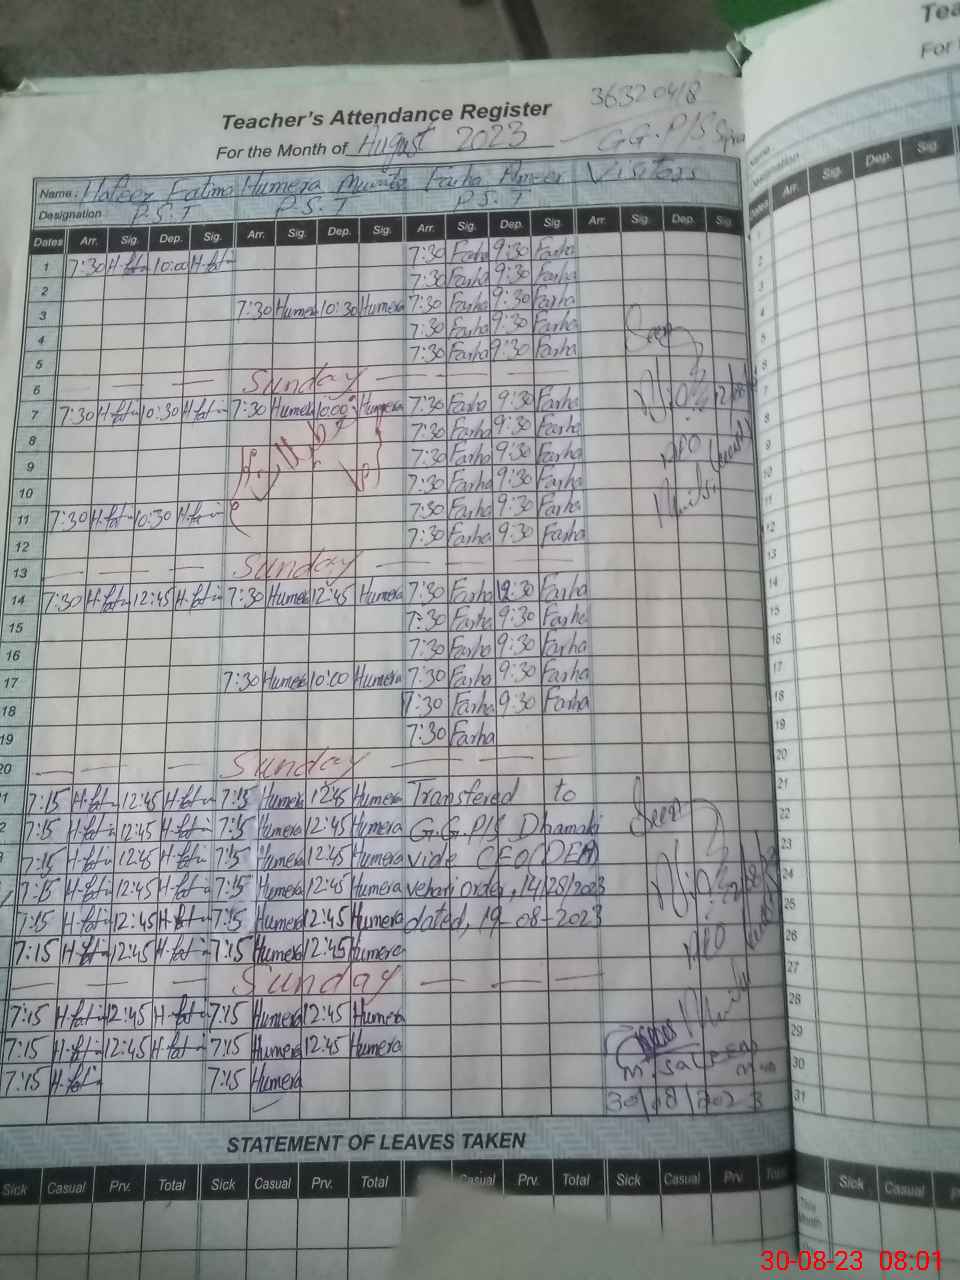 Teacher's Attendance Register
36320418
For the Month of August 2023
G.G.P/S
Name: Hafeez Fatima Humera Farha Ameer Visitors
Designation P.S.T P.S.T P.S.T
Dates Arr. Sig. Dep. Sig. Arr. Sig. Dep. Sig. Arr. Sig. Dep. Sig. Arr. Sig. Dep. Sig.
1 7:30 H.fatima 10:00 H.fatima 7:30 Farha 9:30 Farha
2 7:30 Farha 9:30 Farha
3 7:30 Humera 10:30 Humera 7:30 Farha 9:30 Farha
4 7:30 Farha 9:30 Farha
5 7:30 Farha 9:30 Farha
6 Sunday
7 7:30 H.fatima 10:30 H.fatima 7:30 Humera 10:00 Humera 7:30 Farha 9:30 Farha
8 7:30 Farha 9:30 Farha
9 7:30 Farha 9:30 Farha
10 7:30 Farha 9:30 Farha
11 7:30 H.fatima 10:30 H.fatima 7:30 Farha 9:30 Farha
12 7:30 Farha 9:30 Farha
13 Sunday
14 7:30 H.fatima 12:45 H.fatima 7:30 Humera 12:45 Humera 7:30 Farha 12:30 Farha
15 7:30 Farha 9:30 Farha
16 7:30 Farha 9:30 Farha
17 7:30 Humera 10:00 Humera 7:30 Farha 9:30 Farha
18 7:30 Farha 9:30 Farha
19 7:30 Farha
20 Sunday
7:15 H.fatima 12:45 H.fatima 7:15 Humera 12:45 Humera Transfered to
7:15 H.fatima 12:45 H.fatima 7:15 Humera 12:45 Humera G.G.P/S Dhamaki
7:15 H.fatima 12:45 H.fatima 7:15 Humera 12:45 Humera vide CEO(DEA)
7:15 H.fatima 12:45 H.fatima 7:15 Humera 12:45 Humera vehari order, 14/28/2023
7:15 H.fatima 12:45 H.fatima 7:15 Humera 12:45 Humera dated, 19-08-2023
7:15 H.fatima 12:45 H.fatima 7:15 Humera 12:45 Humera
Sunday
7:15 H.fatima 12:45 H.fatima 7:15 Humera 12:45 Humera
7:15 H.fatima 12:45 H.fatima 7:15 Humera 12:45 Humera
7:15 H.fatima 7:15 Humera
Seen
Seen
30/08/2023
STATEMENT OF LEAVES TAKEN
Sick Casual Prv. Total Sick Casual Prv. Total Casual Prv. Total Sick Casual Prv Total
Tea
For
Name
Designation
Dates Arr. Sig. Dep. Sig.
1
2
3
4
5
6
7
8
9
10
11
12
13
14
15
16
17
18
19
20
21
22
23
24
25
26
27
28
29
30
31
Sick Casual
This Month
30-08-23 08:01